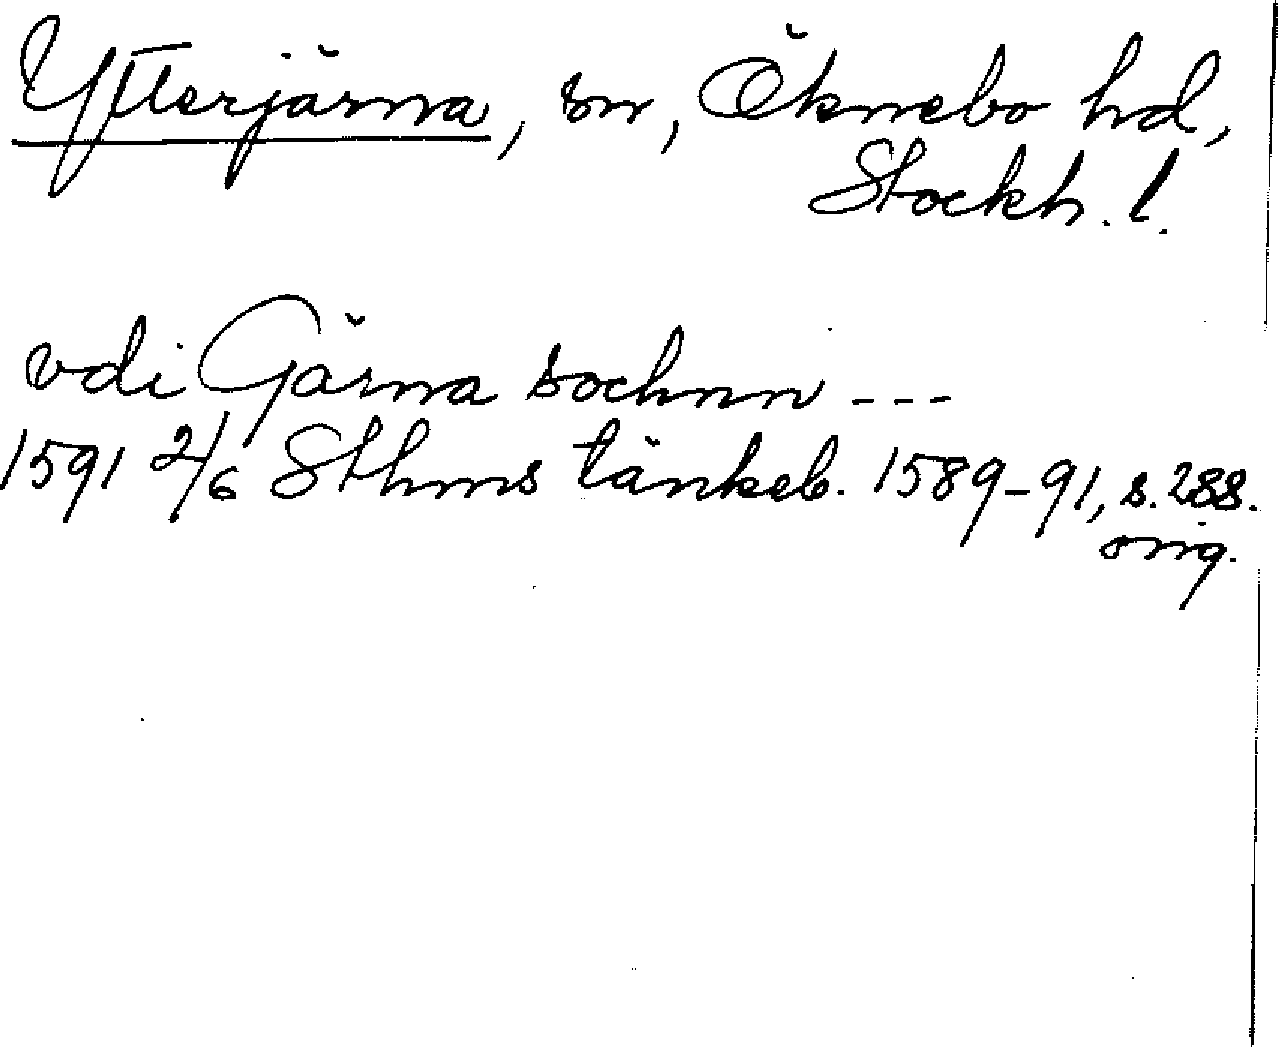 Ytterjärna, sn, Öknebo hd,
Stockh. l.
vdi Gärna sochnn ---
1591 2/6 Sthms tänkeb. 1589-91, s. 288.
orig.